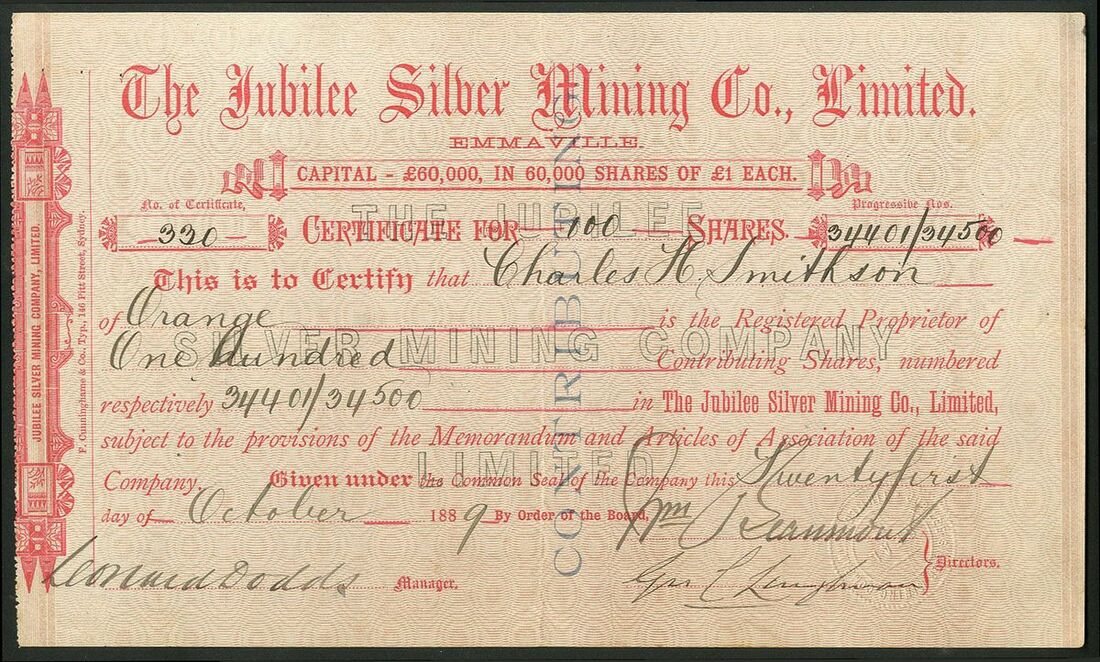 The Jubilee Silver Mining Co., Limited.
EMMAVILLE.
CAPITAL - £60,000, IN 60,000 SHARES OF £1 EACH.
No. of Certificate, Progressive Nos.
330 CERTIFICATE FOR 100 SHARES. 34401/34500
This is to Certify that Charles H. Smithson
of Orange is the Registered Proprietor of
One Hundred Contributing Shares, numbered
respectively 34401/34500 in The Jubilee Silver Mining Co., Limited,
subject to the provisions of the Memorandum and Articles of Association of the said
Company. Given under the Common Seal of the Company this Twentyfirst
day of October 1889 By Order of the Board,
Leonard Dodds Manager. Directors.
THE JUBILEE
SILVER MINING COMPANY
LIMITED
CONTRIBUTING
JUBILEE SILVER MINING COMPANY, LIMITED.
F. Cunninghame & Co., Typ., 146 Pitt Street, Sydney.